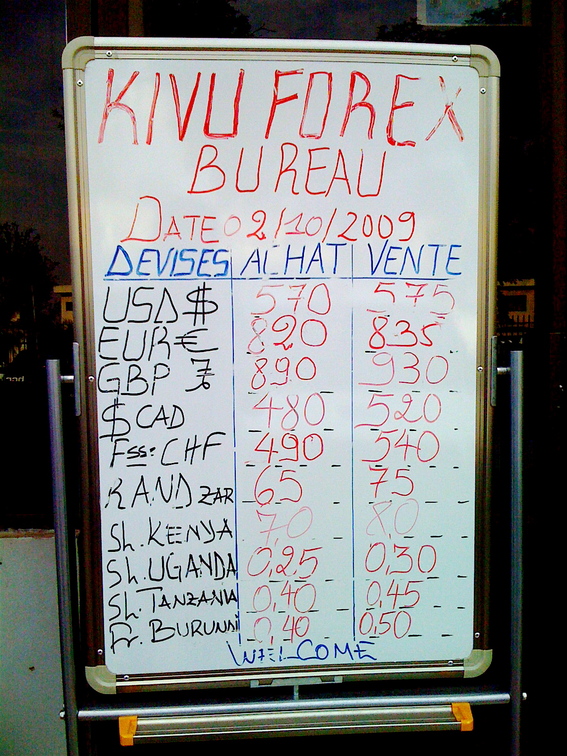 KIVU FOREX
BUREAU
DATE 02/10/2009
DEVISES ACHAT VENTE
USD $ 570 575
EUR € 820 835
GBP 890 930
$ CAD 480 520
Fss: CHF 490 540
RAND ZAR 65 75
Sh. KENYA 7,0 8,0
Sh. UGANDA 0,25 0,30
Sh. TANZANIA 0,40 0,45
Fr. BURUNDI 0,40 0,50
WELCOME